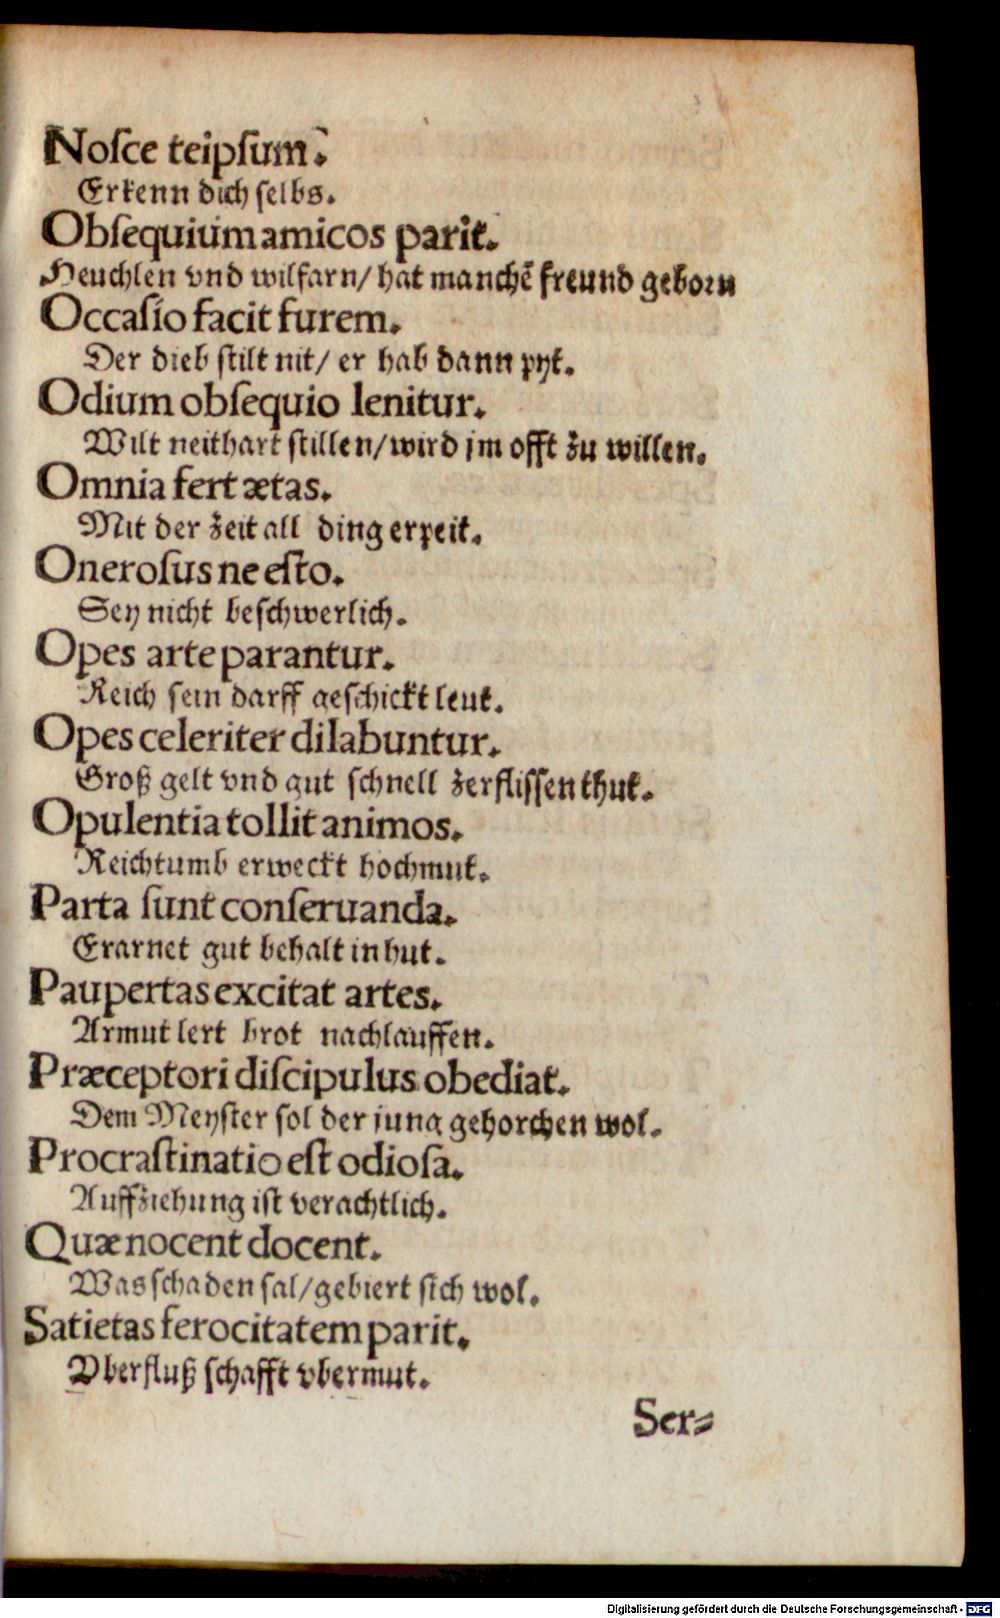 Noſce teipſum.
Erkenn dich ſelbs.
Obſequium amicos parit.
Heuchlen vnd wilfarn/ hat manchē freund geborn
Occaſio facit furem.
Der dieb ſtilt nit/ er hab dann pyt.
Odium obſequio lenitur.
Wilt neithart ſtillen/ wird jm offt zu willen.
Omnia fert ætas.
Mit der zeit all ding erpeit.
Oneroſus ne eſto.
Sey nicht beſchwerlich.
Opes arte parantur.
Reich ſein darff geſchickt leut.
Opes celeriter dilabuntur.
Groß gelt vnd gut ſchnell zerfliſſen thut.
Opulentia tollit animos.
Reichtumb erweckt hochmut.
Parta ſunt conſeruanda.
Erarnet gut behalt in hut.
Paupertas excitat artes.
Armut lert brot nachlauffen.
Præceptori diſcipulus obediat.
Dem Meyſter ſol der jung gehorchen wol.
Procraſtinatio eſt odioſa.
Auffziehung iſt verachtlich.
Quæ nocent docent.
Was ſchaden ſal/ gebiert ſich wol.
Satietas ferocitatem parit.
Vberfluß ſchafft vbermut.
Ser⸗
Digitalisierung gefördert durch die Deutsche Forschungsgemeinschaft - DFG